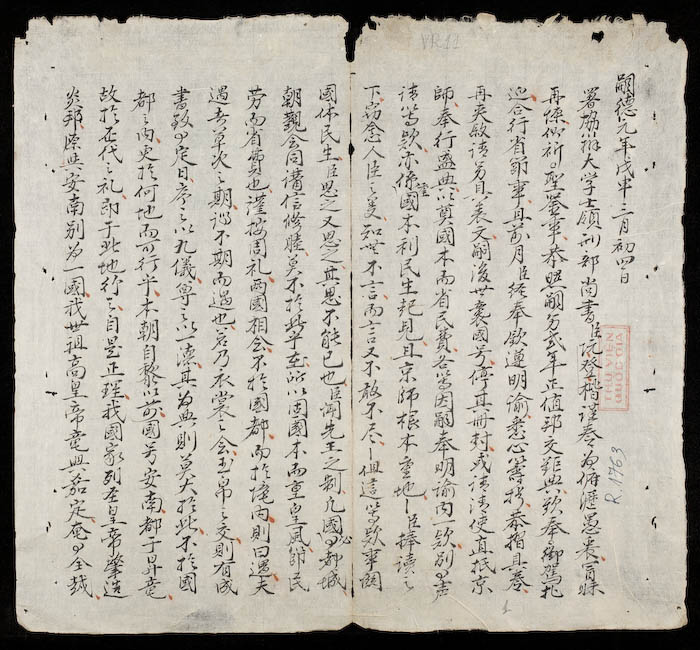 VR.11
嗣德元年戊申三月初四日
署協辦大学士領刑部尚書臣阮登楷謹奏為俯瀝愚衷冒昧
再陳仰祈聖鑒事恭照嗣另貳年正值邦交鉅典欽奉御駕北
迎合行省節事且前月臣經奉欽遵明諭悉心籌挍恭摺具奏
再夾敘請另具表文嗣後世襲國号停其冊封或請清使直抵京
師奉行盛典以尊國本而省民費各等因嗣奉明諭內一欵別有声
請等欵亦係國本利民生起見且京師根本重地臣捧讀之
下竊念人臣之義知無不言而言又不敢不尽但這等欵事關
國体民生臣思之又思之其思不能已也臣聞先王之制凡國必有都城
朝覲会同講信修睦莫不於此乎在所以固國本而重皇風節民
劳而省費也謹按周礼兩國相会不於國都而於境內則曰遇夫
遇者草次之期謂不期而遇也若乃衣裳之会玉帛之交則有成
書致有定日序之以九儀尊之以一其為典則莫大於此不於國
都之內更於何地而可行乎本朝自黎以前國号安南都于昇竜
故於歷代之礼即于此地行之自是正理我國家列聖皇帝肇造
炎邦原與安南別為一國我世祖高皇帝竜興嘉定奄有全越
THƯ VIỆN
QUỐC GIA
R.1763